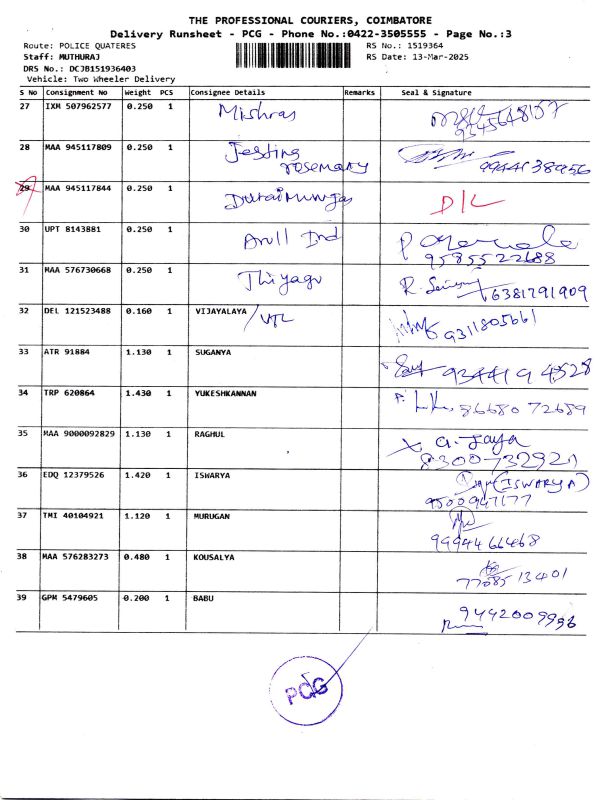 THE PROFESSIONAL COURIERS, COIMBATORE
Delivery Runsheet - PCG - Phone No.:0422-3505555 - Page No.:3
Route: POLICE QUATERES RS No.: 1519364
Staff: MUTHURAJ RS Date: 13-Mar-2025
DRS No.: DCJB151936403
Vehicle: Two Wheeler Delivery
S No Consignment No Weight PCS Consignee Details Remarks Seal & Signature
27 IXM 507962577 0.250 1 Mishras 9345648157
28 MAA 945117809 0.250 1 rosemary 9944138956
29 MAA 945117844 0.250 1 Duraimurugas D/L
30 UPT 8143881 0.250 1 Arull Ind
9585522688
31 MAA 576730668 0.250 1 Thiyagu R. 6381791909
32 DEL 121523488 0.160 1 VIJAYALAYA / VTL 9311805661
33 ATR 91884 1.130 1 SUGANYA 934419 4528
34 TRP 620864 1.430 1 YUKESHKANNAN 86680 72689
35 MAA 9000092829 1.130 1 RAGHUL X a. Jaya
8300732921
36 EDQ 12379526 1.420 1 ISWARYA (ISWARYA)
9500947177
37 TMI 40104921 1.120 1 MURUGAN
9994466468
38 MAA 576283273 0.480 1 KOUSALYA
77085 13401
39 GPM 5479605 0.200 1 BABU 9442009996
PCG